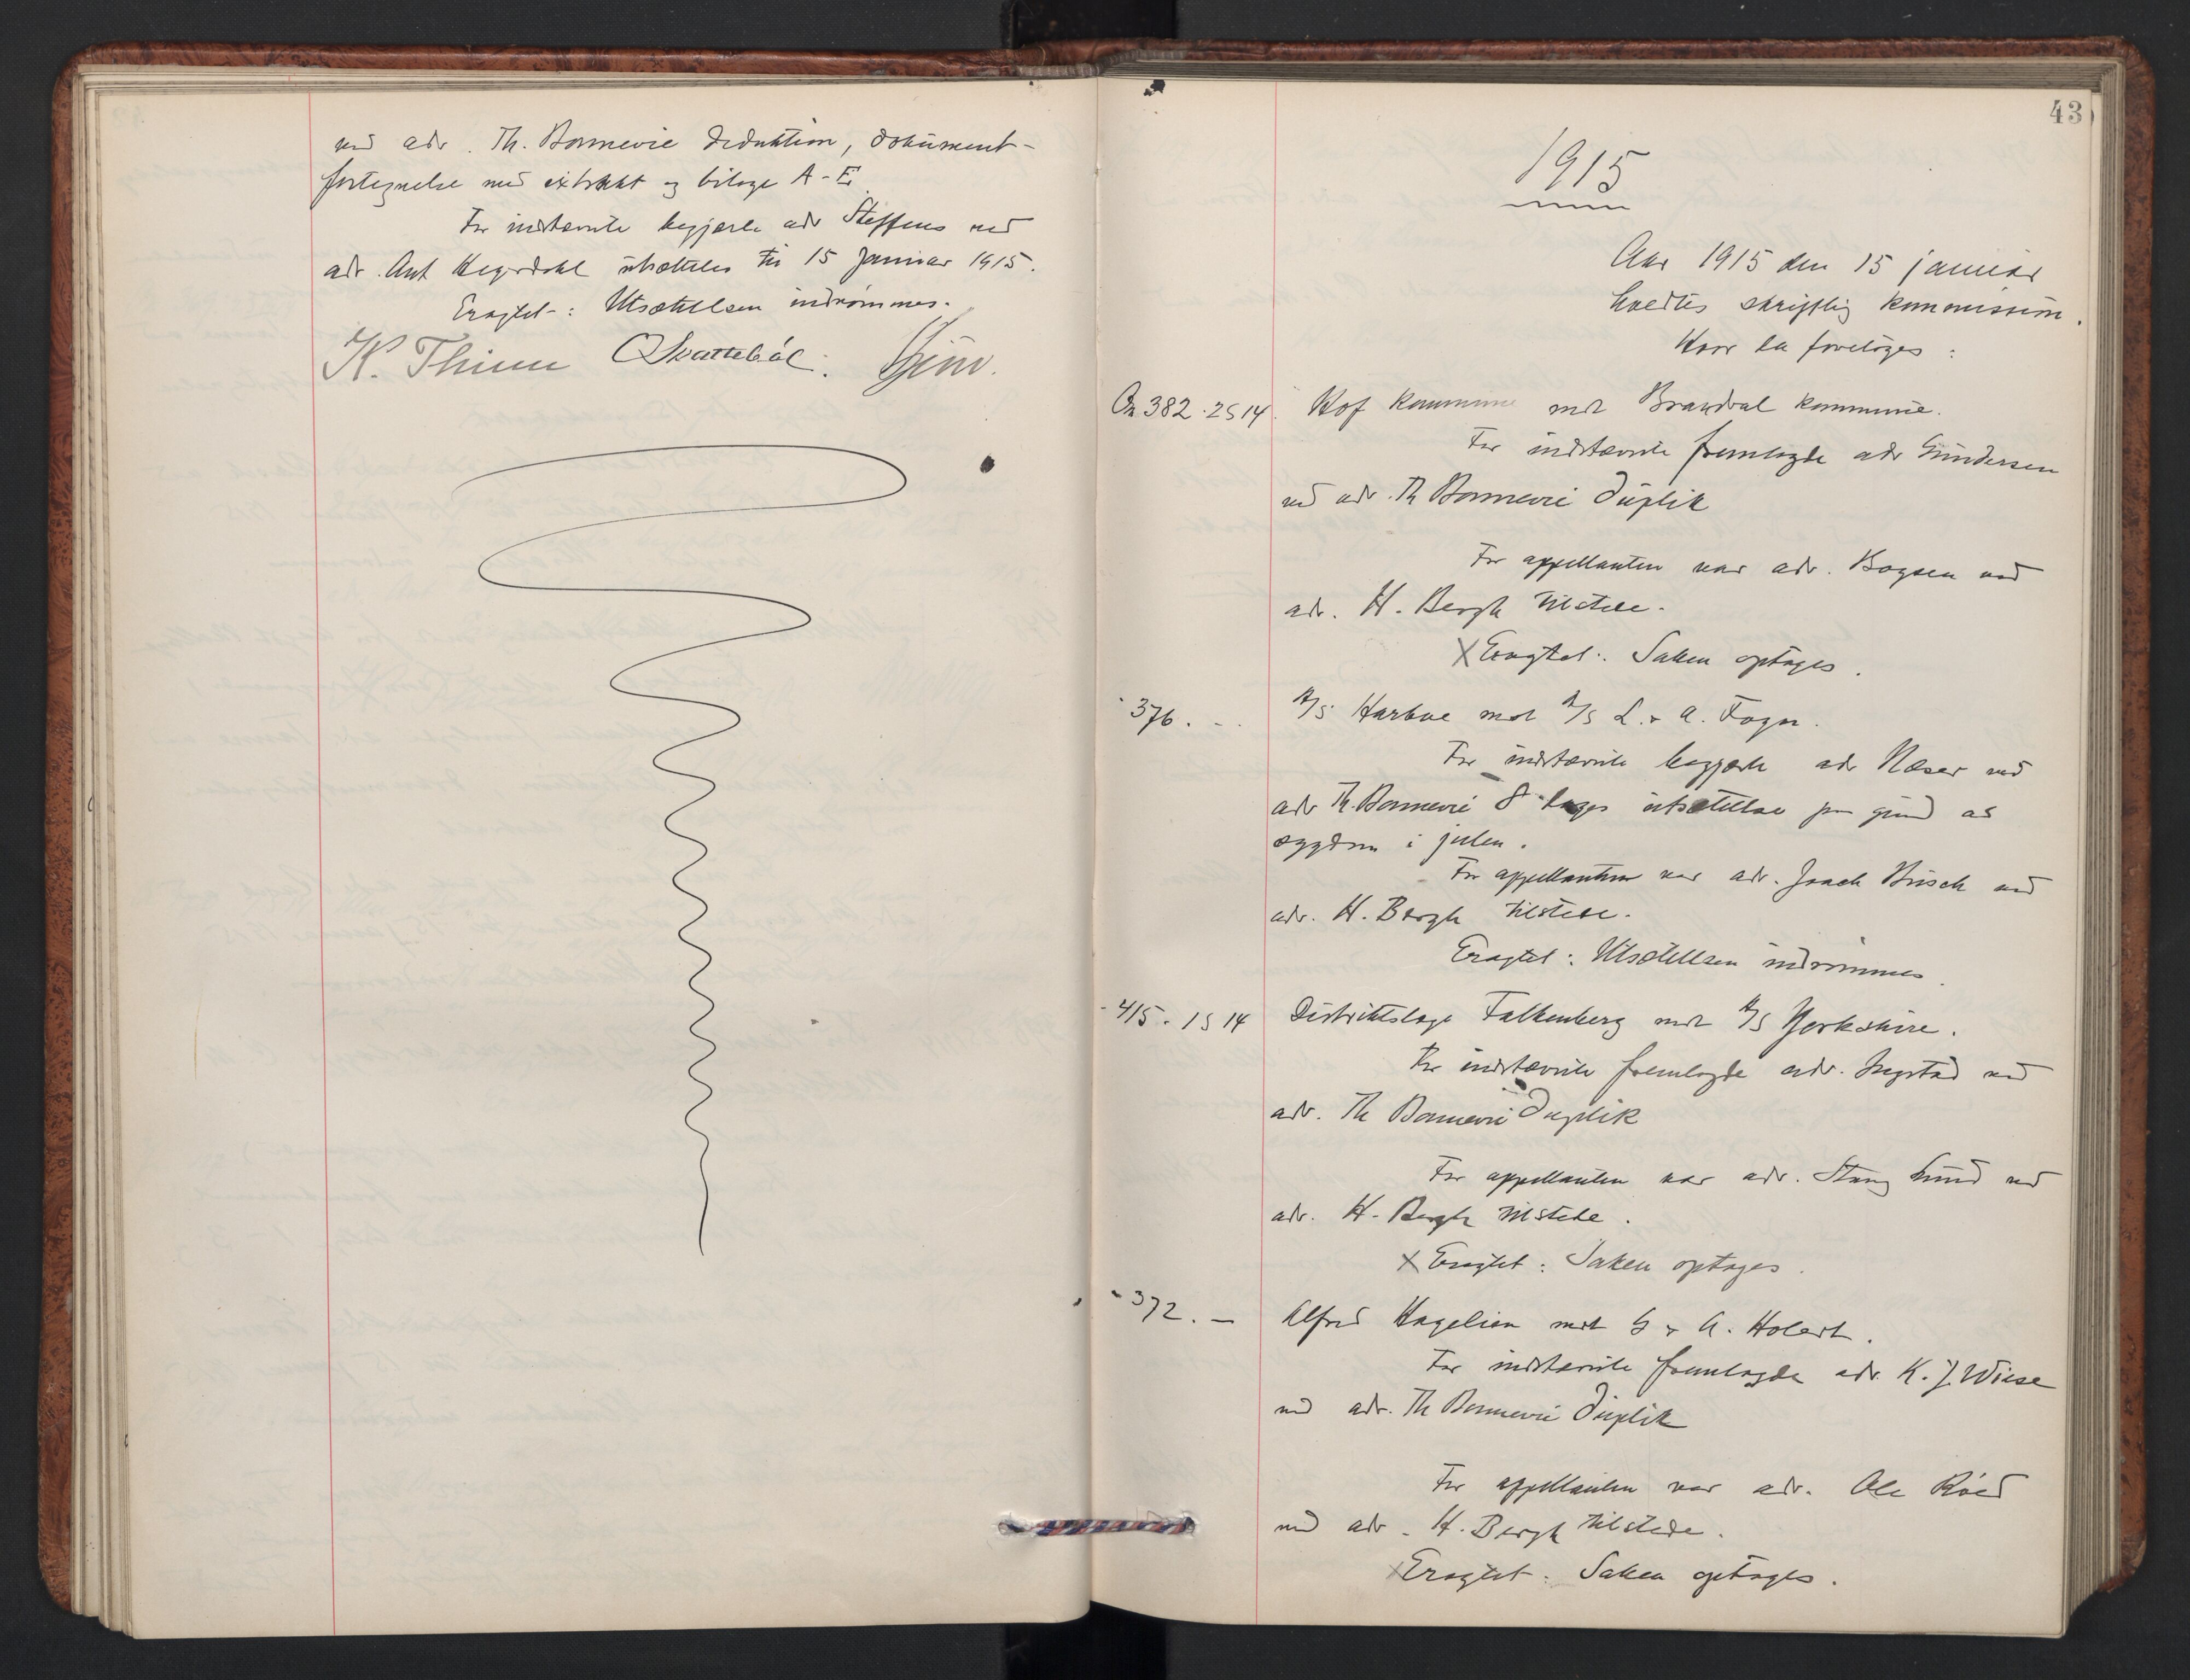 ved adv. Th. Bonnevie deduktion, dokument-
fortegnelse med extrakt og bilage A-E
For indstevnte begjærte adv Steffens ved
adv. Ant utsættelse til 15 januar 1915.
Eragtet: Utsættelsen indrømmes.
K. Thinn Skattebøl.
43
1915
Aar 1915 den 15 januar
holdtes skriftlig kommission.
Hvor da foretoges:
On 382. 2S14. Hof kommune mot Brandval kommune.
For indstævnte fremlagde adv Gundersen
ved adv. Th Bonnevie Duplik
For appellanten var adv. Boysen ved
adv. H. Bergh tilstede.
X Eragtet: Saken optages.
" 376. - A/S Harboe mot A/S L. & A. Fogn.
For indstævnte begjærte adv Næser ved
adv Th. Bonnevie 8 dages utsættelse paa grund av
sygdom i julen.
For appellanten var adv. Joach Busch ved
adv. H. Bergh tilstede.
Eragtet: Utsættelsen indrømmes
- 415. 1S14 Distriktslage Falkenberg mot A/S Yorkshire.
For indstævnte fremlagde adv. Ingstad ved
adv. Th Bonnevie Duplik
For appellanten var adv. Stang Lund ved
adv. H. Bergh tilstede.
X Eragtet: Saken optages.
" 372. - Alfred Hagelien mot G & A. Holert.
For indstævnte fremlagde adv. K. J. Wiese
ved adv. Th Bonnevie Duplik
For appellanten var adv. Ole Röed
ved adv. H. Bergh tilstede.
X Eragtet: Saken optages.